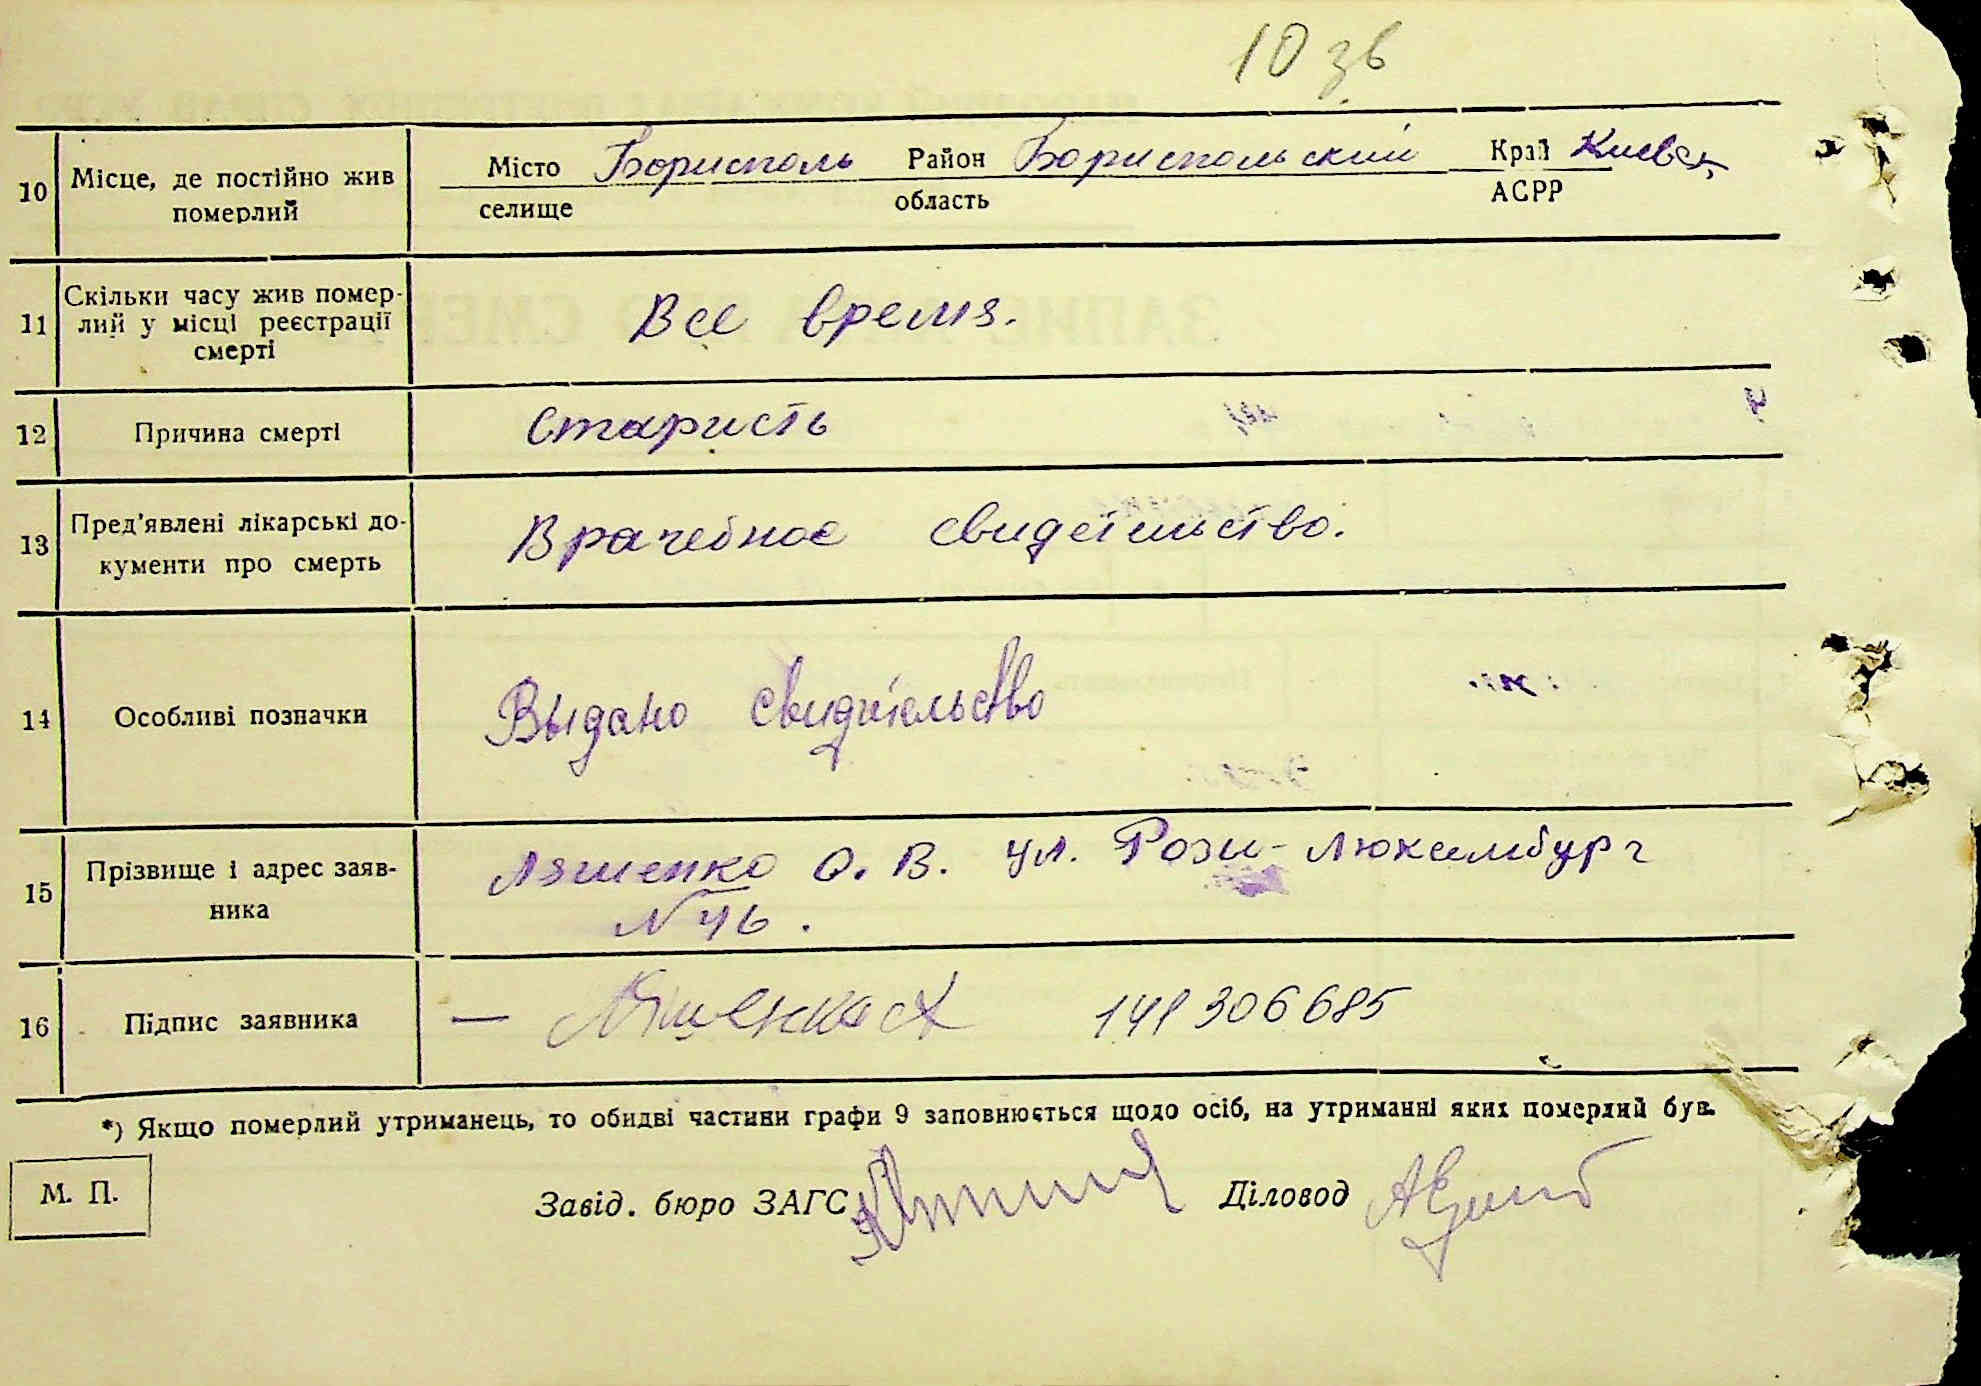 10 зв
10 Місце, де постійно жив померлий Місто селище Борисполь Район область Бориспольский Край АСРР Киевск
11 Скільки часу жив помер-
лий у місці реєстрації
смерті
Все время.
12 Причина смерті Старисть
13 Пред'явлені лікарські до-
кументи про смерть
Врачебное свидетельство.
14 Особливі позначки Выдано свидетельство
15 Прізвище і адрес заяв-
ника
Ляшенко О. В. ул. Розы-Люксембург
N 46.
16 Підпис заявника — Ляшенко 306685
*) Якщо померлий утриманець, то обидві частини графи 9 заповнюється щодо осіб, на утриманні яких померлий був.
М. П. Завід. бюро ЗАГС Діловод